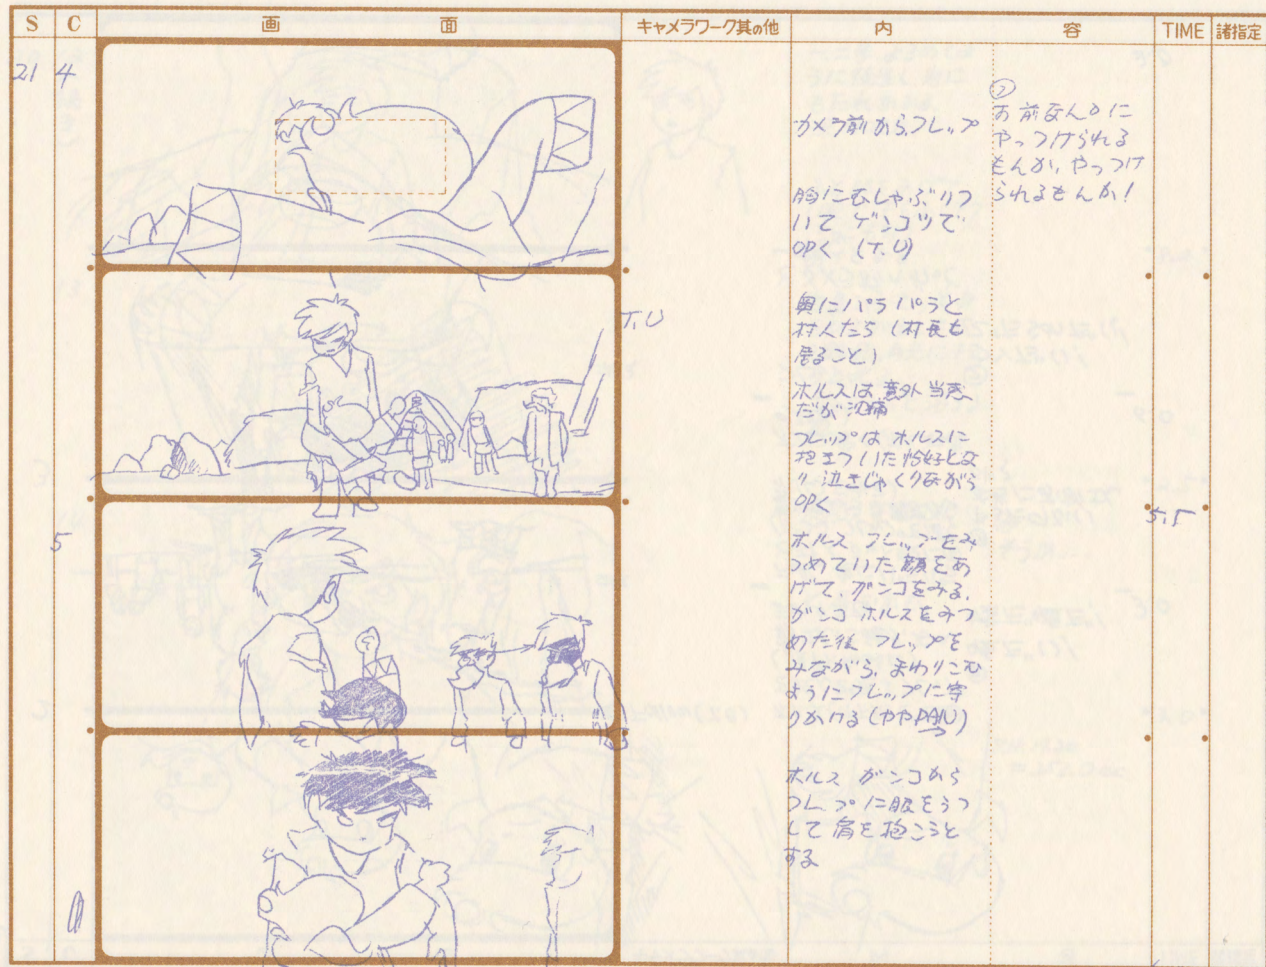 S C 画 面 キャメラワーク其の他 内 容 TIME 諸指定
21 4
カメラ前からフレップ
胸にむしゃぶりつ
いて ゲンコツで
叩く (T.U)
フ
お前なんかに
やっつけられる
もんか、やっつけ
られるもんか!
T.U
奥にパラパラと
村人たち (村長も
居ること)
ホルスは 意外 当惑
だが沈痛
フレップは ホルスに
抱きついた恰好とな
り 泣きじゃくりながら
叩く
5
ホルス フレップをみ
つめていた顔をあ
げて、ガンコをみる、
ガンコ ホルスをみつ
めた後 フレップを
みながら、まわりこむ
ようにフレップに寄
りかける (ややPAN)
ホルス ガンコから
フレップに眼をうつ
して 肩を抱こうと
する